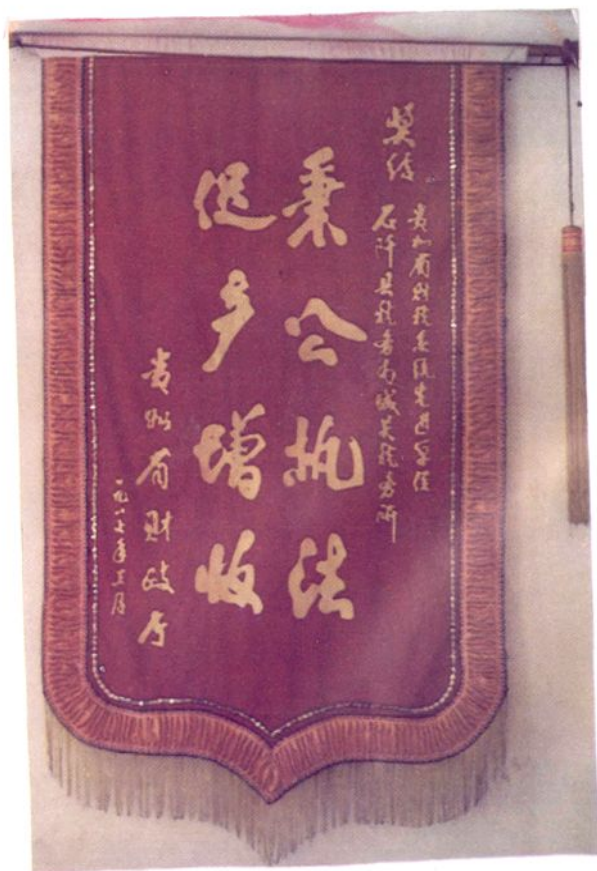 奖给
贵州省财税系统先进单位
石阡县税务局城关税务所
秉公执法
促产增收
贵州省财政厅
一九八七年三月